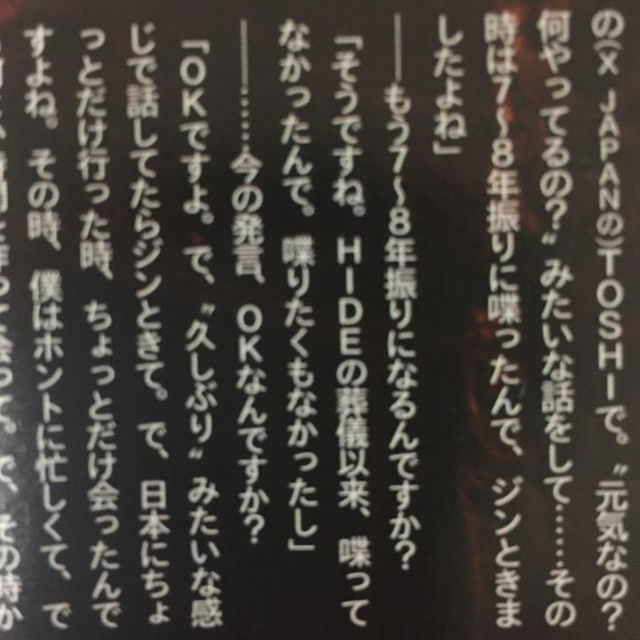 の(X JAPANの)TOSHIで。〝元気なの?
何やってるの?〟みたいな話をして……その
時は7〜8年振りに喋ったんで、ジンときま
したよね」
――もう7〜8年振りになるんですか?
「そうですね。HIDEの葬儀以来、喋って
なかったんで。喋りたくもなかったし」
――……今の発言、OKなんですか?
「OKですよ。で、〝久しぶり〟みたいな感
じで話してたらジンときて。で、日本にちょ
っとだけ行った時、ちょっとだけ会ったんで
すよね。その時、僕はホントに忙しくて、で
って会って。で、その時か